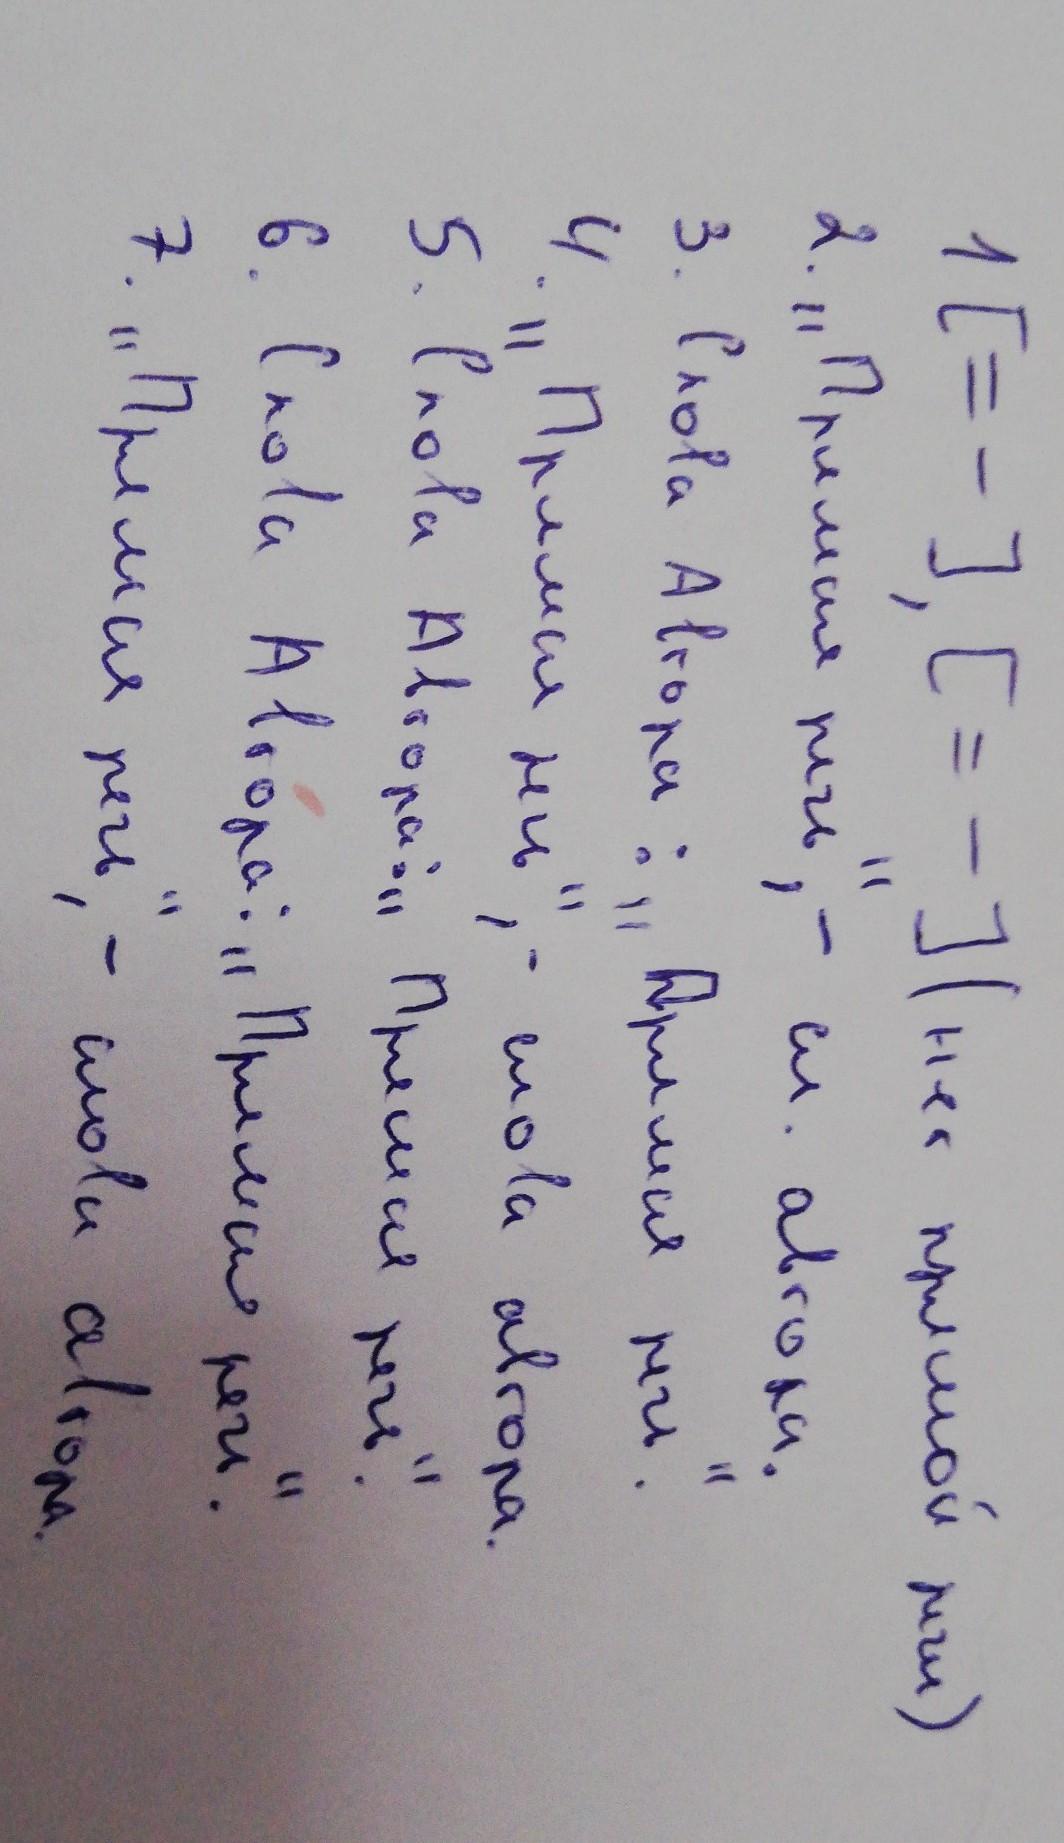 1 [= -], [= -] (нет прямой речи)
2. „Прямая речь“, - сл. автора.
3. Слова Автора: „Прямая речь“.
4. „Прямая речь“, - слова автора.
5. Слова Автора: „Прямая речь“.
6. Слова Автора: „Прямая речь“.
7. „Прямая речь“, - слова автора.